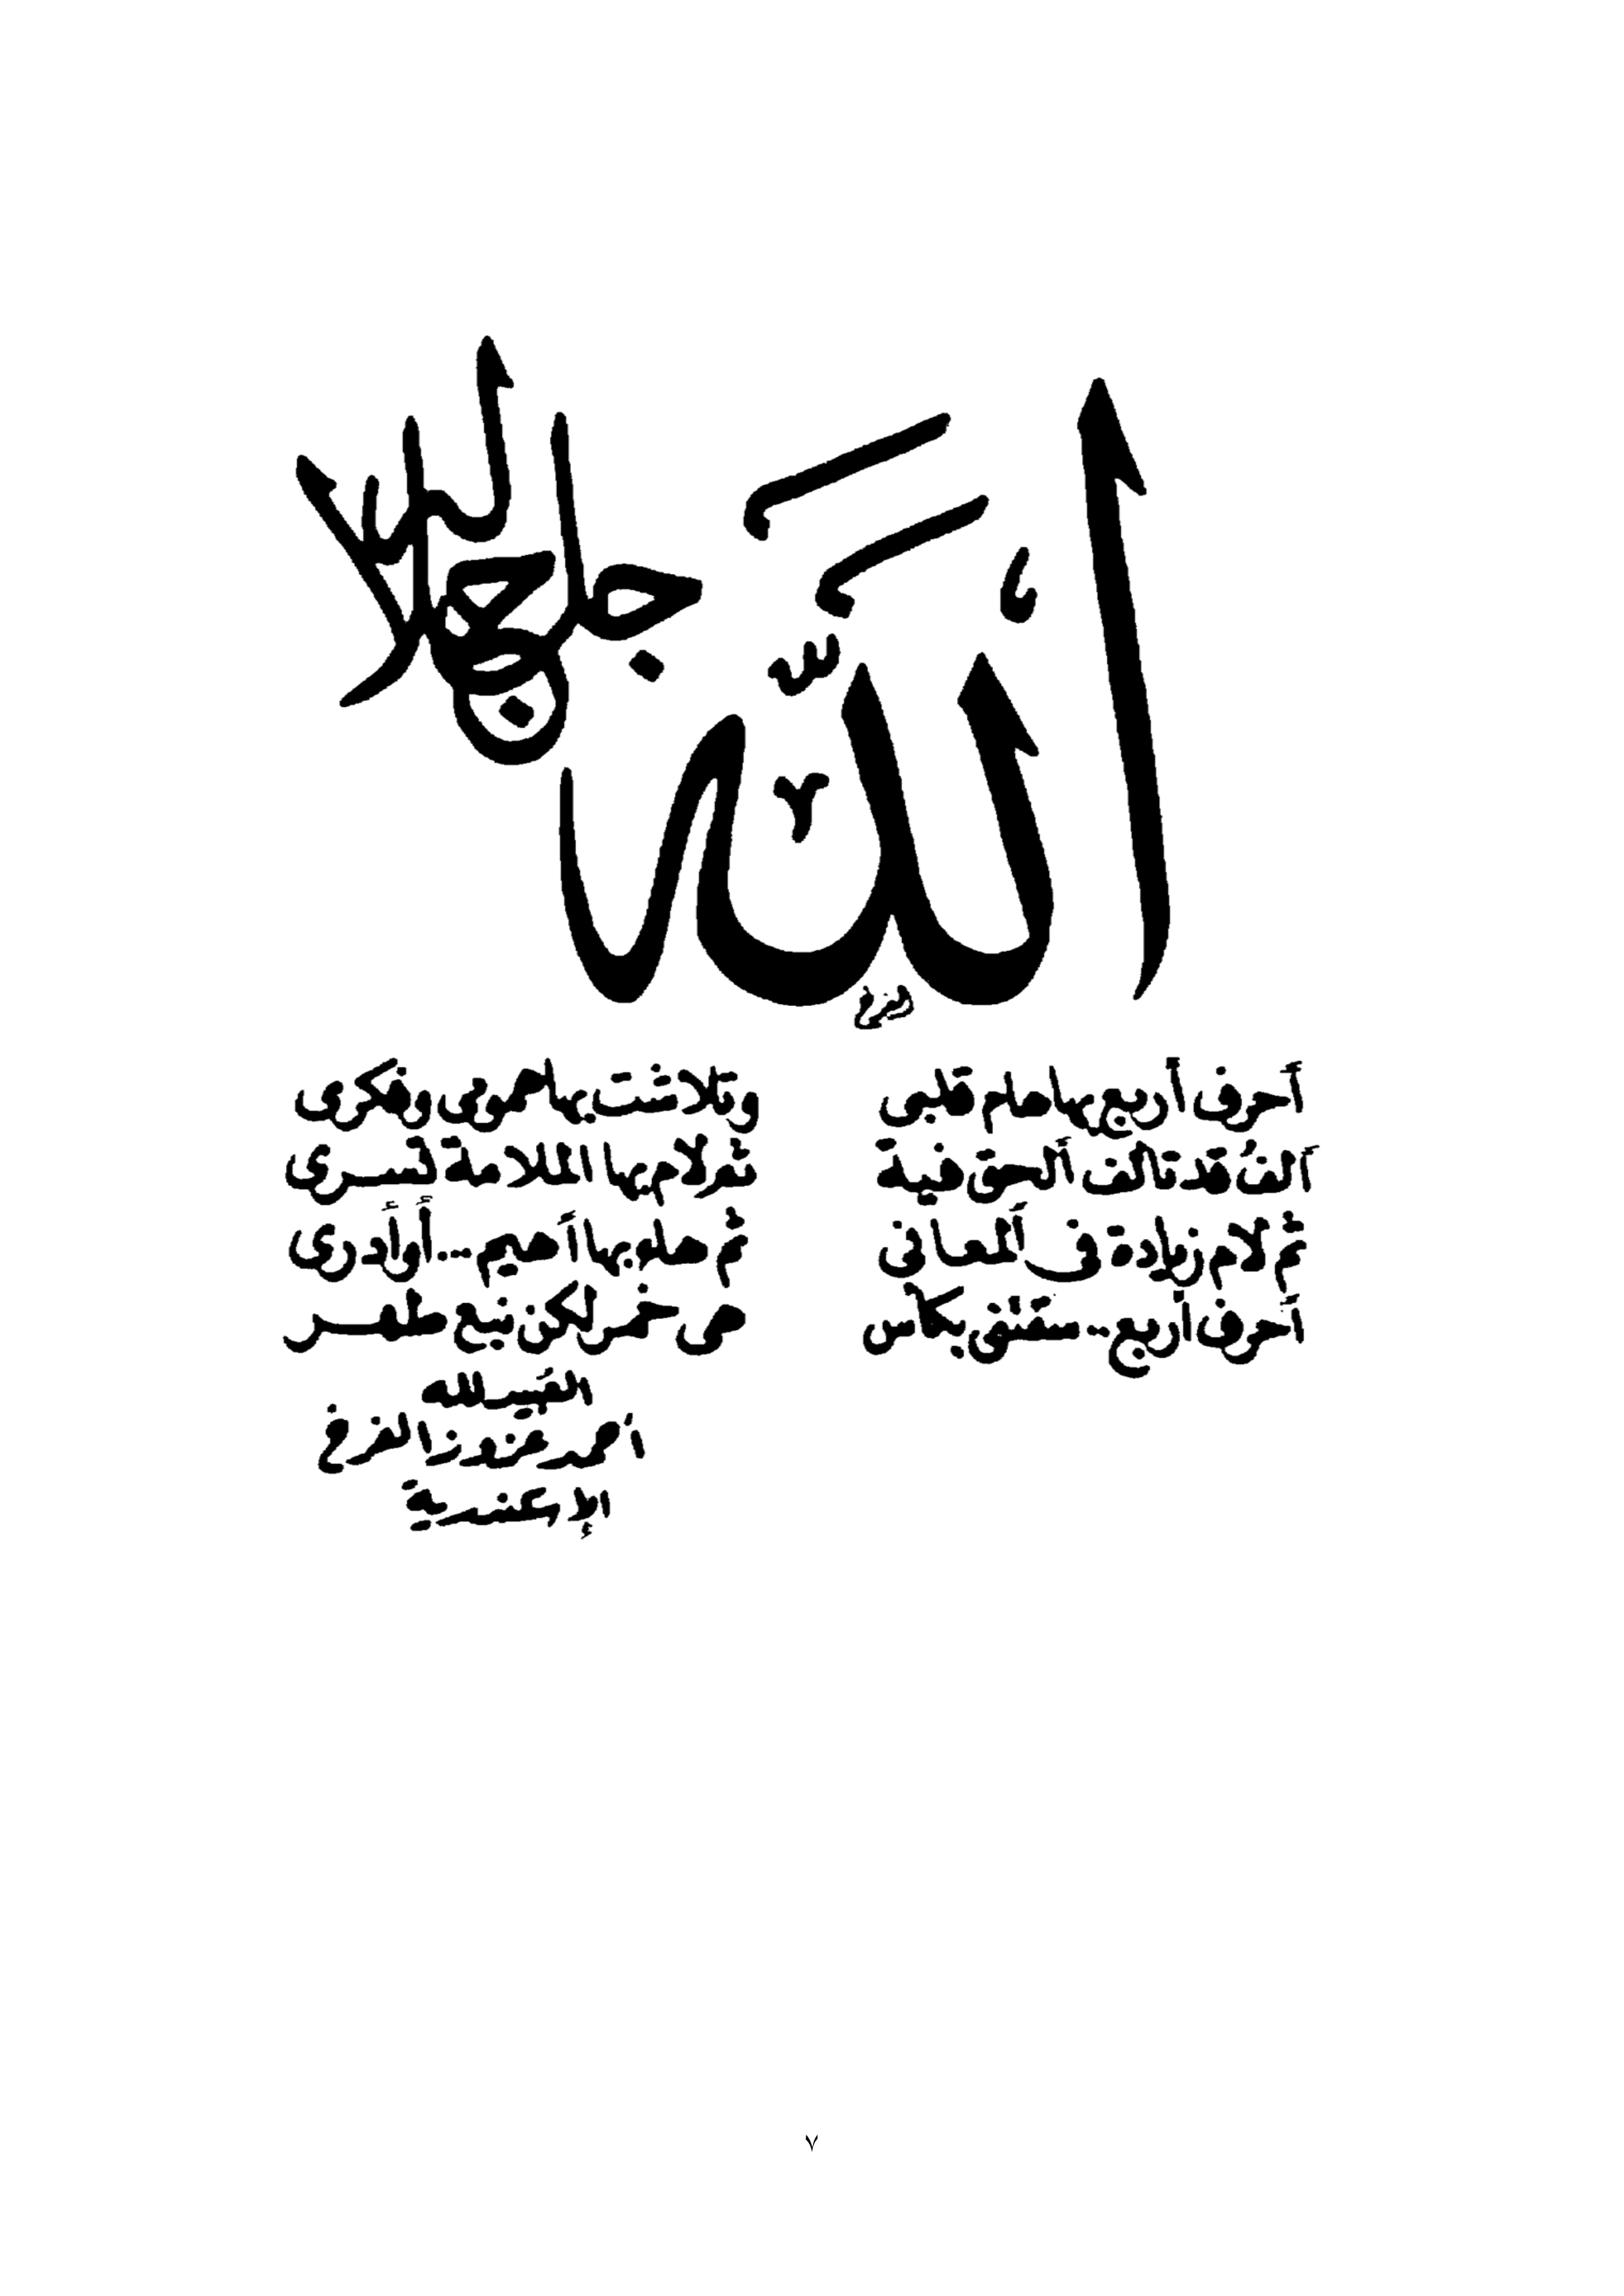 الله جل جلاله
أحرف أربع بها هام قلبى وتلاشت بها همومى وفكرى
ألف قد تألف الحق فيه ثم لام بها الملامة تسرى
ثم لام زيادة فى المعانى ثم هاء بها أهيم .. أو أدرى
أحرف أربع .. ستسقى بكأس من خمر لكن نبع طهر
الفقير لله
أحمد
الإسكندرية
٧